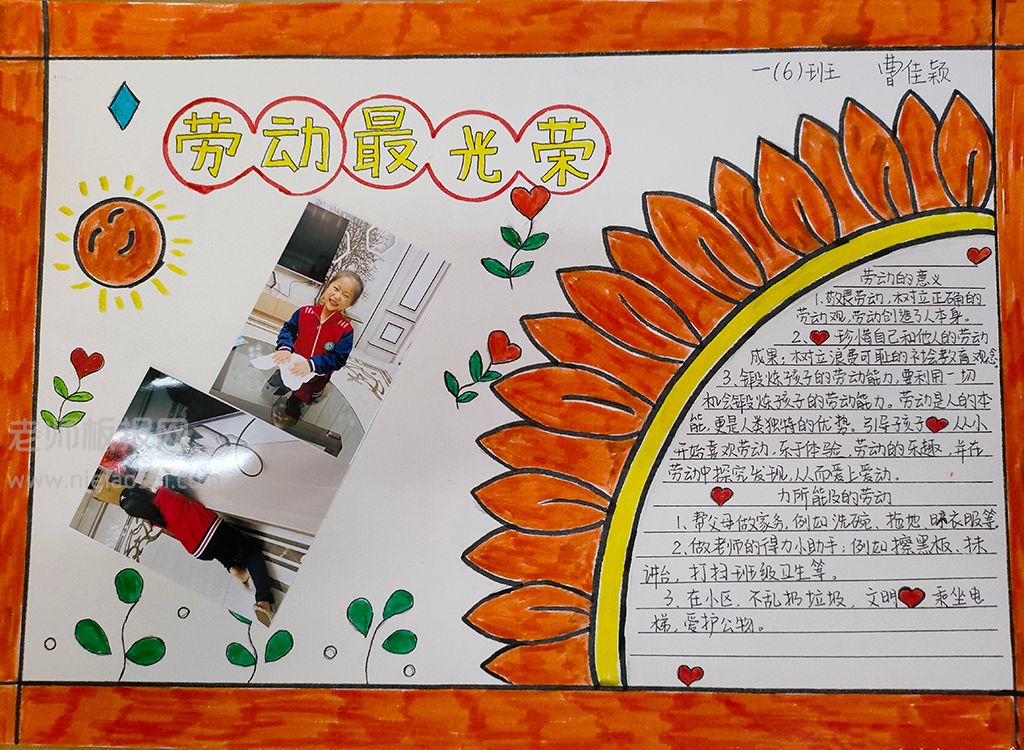 一(6)班 曹佳颖
劳动最光荣
劳动的意义
1.敬畏劳动,树立正确的
劳动观,劳动创造了人本身。
2.珍惜自己和他人的劳动
成果,树立浪费可耻的社会教育观念
3.锻炼孩子的劳动能力,要利用一切
机会锻炼孩子的劳动能力。劳动是人的本
能,更是人类独特的优势。引导孩子从小
开始喜欢劳动,乐于体验,劳动的乐趣,并在
劳动中探究发现,从而爱上爱动。
力所能及的劳动
1、帮父母做家务,例如洗碗、拖地、晾衣服等
2、做老师的得力小助手;例如擦黑板、抹
讲台,打扫班级卫生等。
3、在小区,不乱扔垃圾,文明乘坐电
梯,爱护公物。
老师板报网